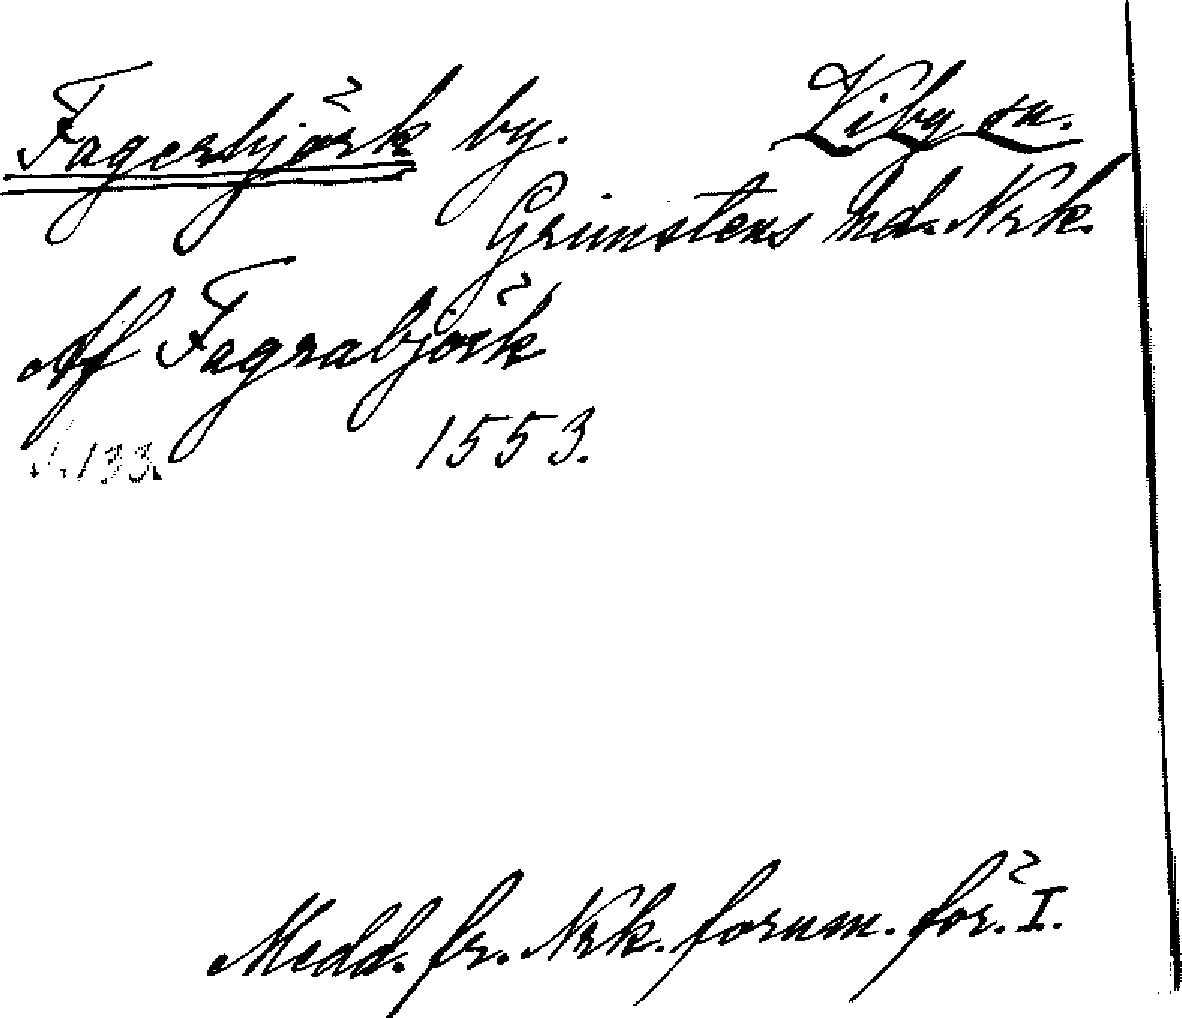 Fagerbjörk by. Viby sn.
Grimstens hd. Nrk.
Af Fagrabjörk
1553.
s. 133.
Medd. fr. Nrk. fornm. för. I.